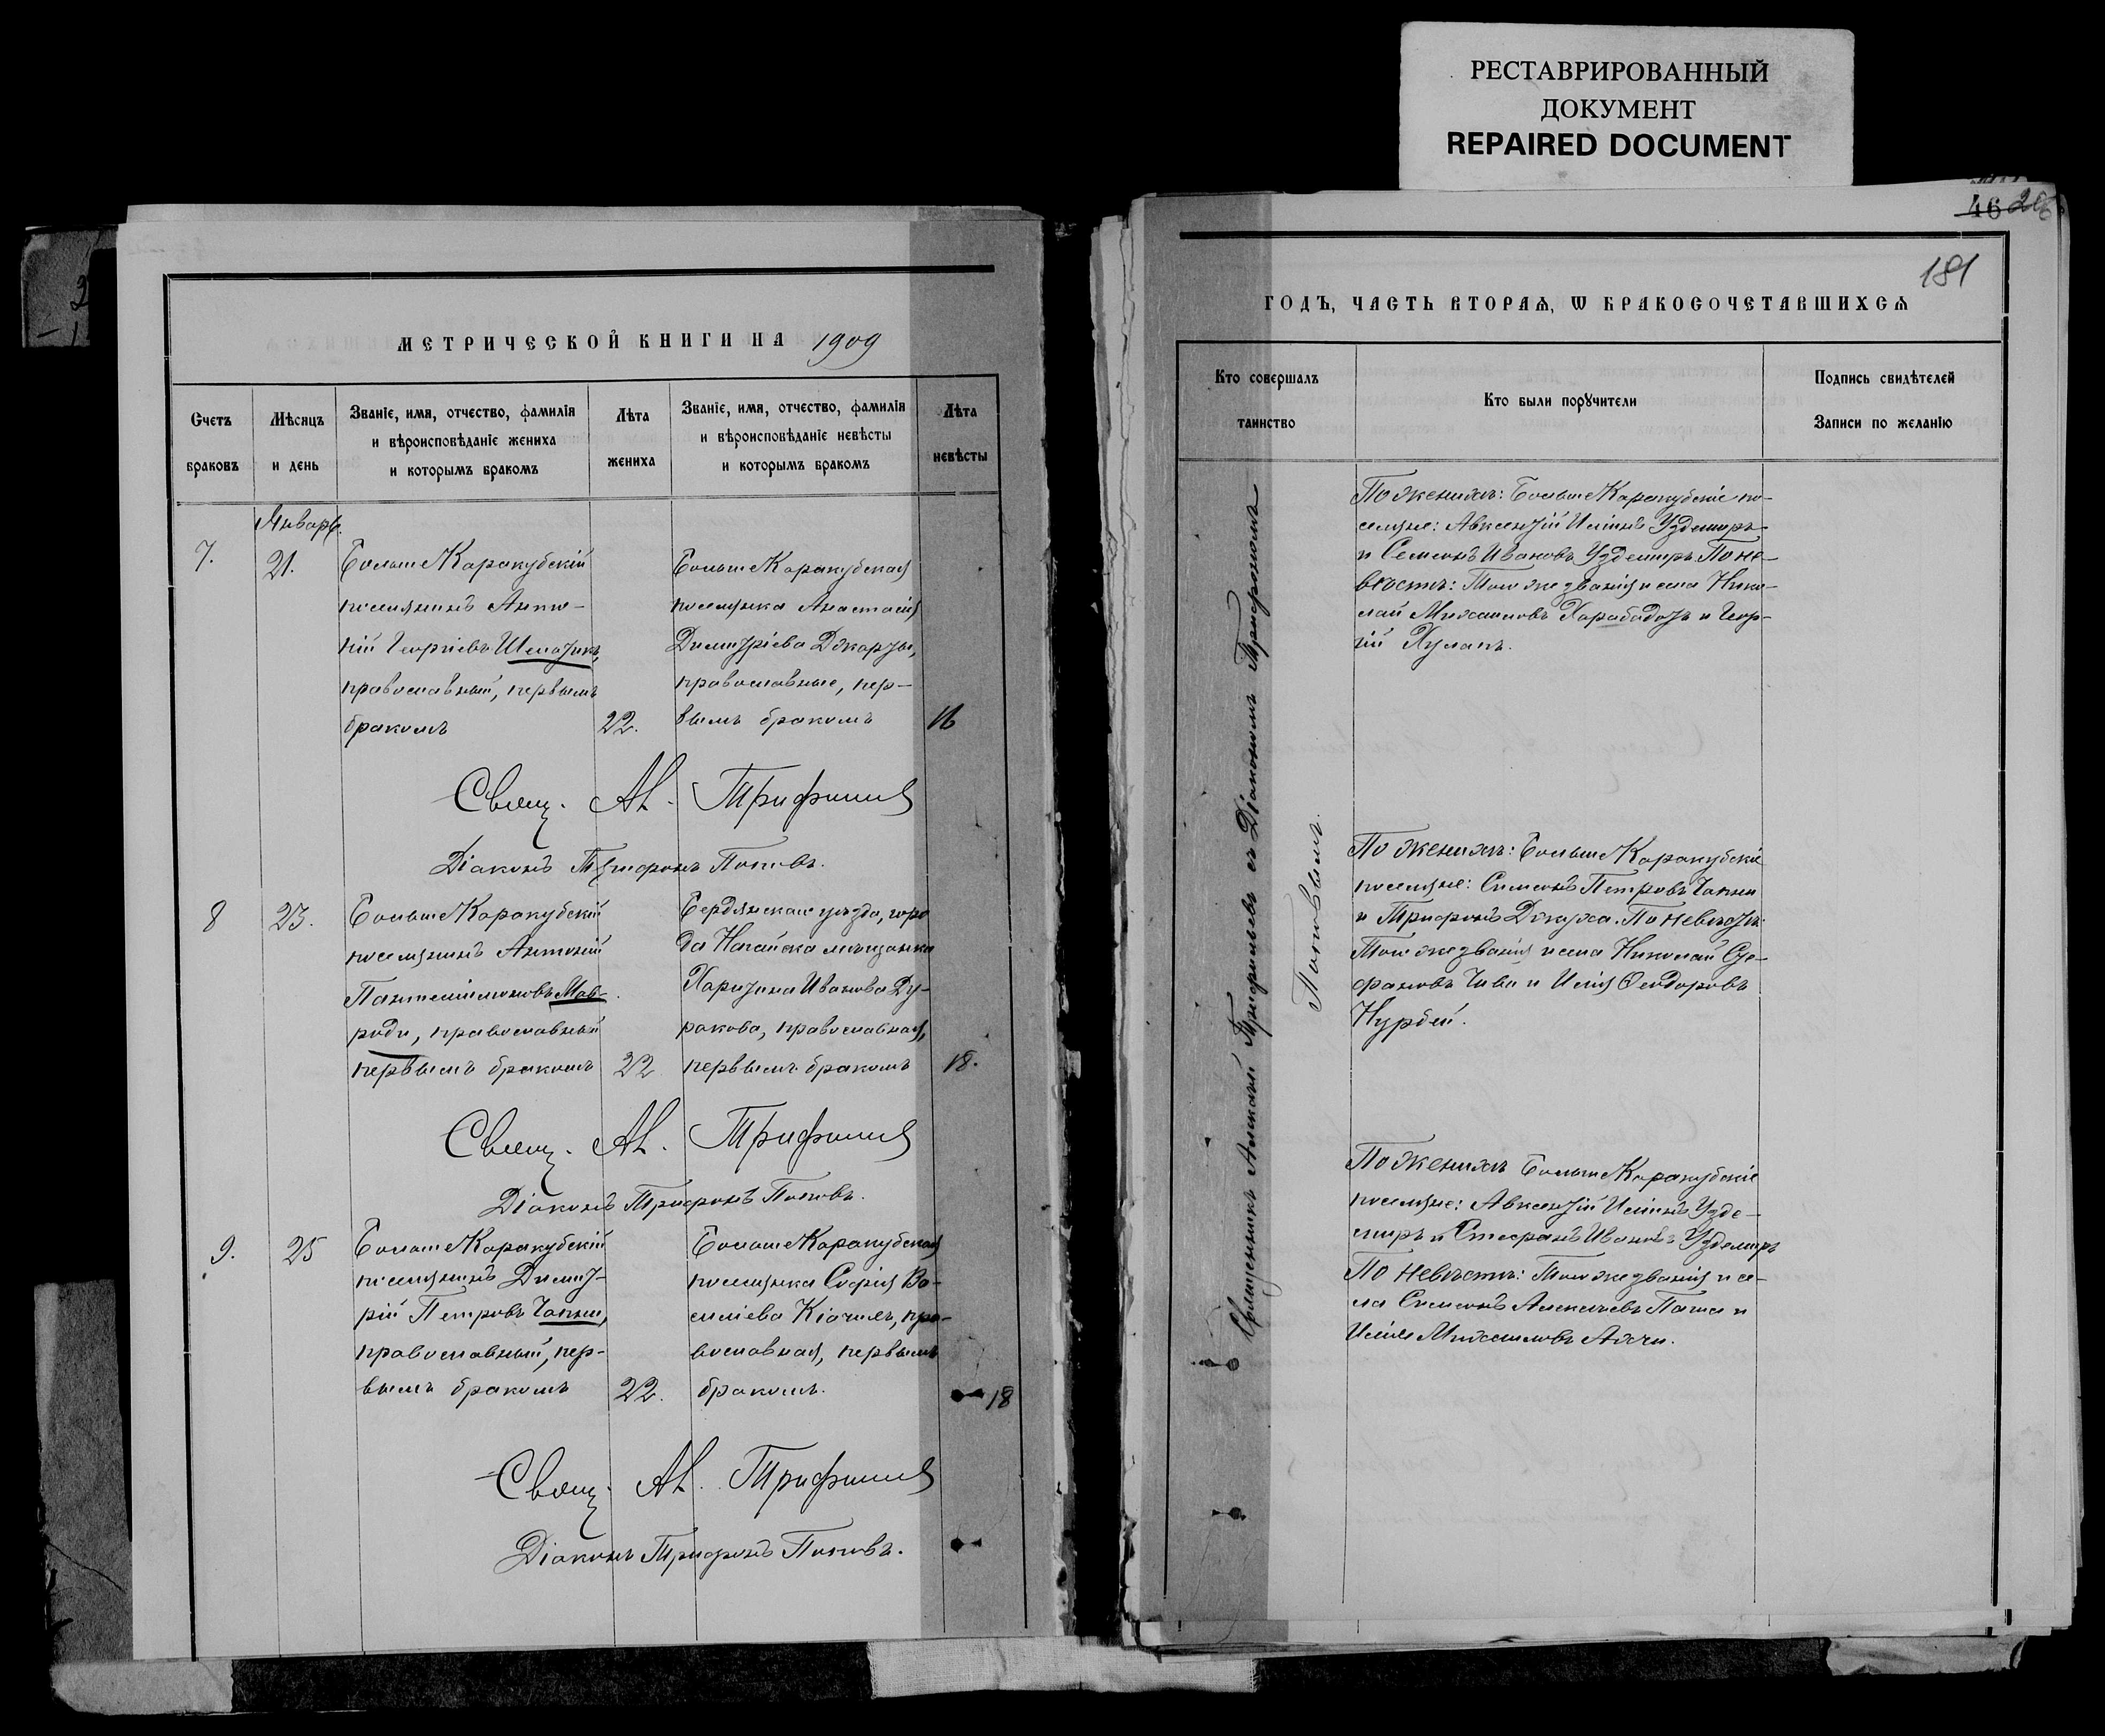 РЕСТАВРИРОВАННЫЙ
ДОКУМЕНТ
REPAIRED DOCUMENT
46
181
МЕТРИЧЕСКОЙ КНИГИ НА 1909
Счетъ
браковъ
Мѣсяцъ
и день
Званіе, имя, отчество, фамилія
и вѣроисповѣданіе жениха
и которымъ бракомъ
Лѣта
жениха
Званіе, имя, отчество, фамилія
и вѣроисповѣданіе невѣсты
и которымъ бракомъ
Лѣта
невѣсты
Январь.
7.
21.
БольшеКаракубскій
поселянинъ Анто-
ній Георгіевъ
православный, первымъ
бракомъ
22.
БольшеКаракубская
поселянка Анастасія
Димитріева Джарты,
православные, пер-
вымъ бракомъ
16
Свящ. Ал. Трифилів
Діаконъ Трифонъ Поповъ.
8
23.
БольшеКаракубскій
поселянинъ Антоній
Пантелеимоновъ Мав-
роди, православный
первымъ бракомъ
22
Бердянскаго уѣзда, горо
да Ногайска мѣщанка
Харитина Иванова Ду-
ракова, православная,
первымъ бракомъ
18.
Свящ. Ал. Трифилів
Діаконъ Трифонъ Поповъ.
9.
25
БольшеКаракубскій
поселянинъ Димит-
рій Петровъ Чапни,
православный, пер-
вымъ бракомъ
22.
БольшеКаракубская
поселянка Софія Ва-
силіева Кіачилъ, пра-
вославная, первымъ
бракомъ.
18
Свящ. Ал. Трифилів
Діаконъ Трифонъ Поповъ.
ГОДЪ, ЧАСТЬ ВТОРАЯ, Ѡ БРАКОСОЧЕТАВШИХСЯ
Кто совершалъ
таинство
Кто были порꙋчители
Подпись свидѣтелей
Записи по желанію
Священникъ Алексій Трифильевъ съ Діакономъ Трифономъ
Поповымъ.
По женихѣ: БольшеКаракубскіе по-
селяне: Авксентій Иліинъ Уздемиръ
и Семенъ Ивановъ Уздемиръ. По не-
вѣстѣ: Того же званія и села Нико-
лай Михаиловъ Харабадотъ и Геор-
гій Хулахъ.
По женихѣ: БольшеКаракубскіе
поселяне: Симеонъ Петровъ Чапни
и Трифонъ Джуха. По невѣстѣ:
Того же званія и села Николай Сте-
фановъ Чива и Илія Ѳеодоровъ
Нурбей.
По женихѣ БольшеКаракубскіе
поселяне: Авксентій ИліинъУзде-
миръ и Стефанъ Ивановъ Уздемиръ
По невѣстѣ: Того же званія и се-
ла Симеонъ Алексіевъ Паша и
Илія Михаиловъ Аачи.